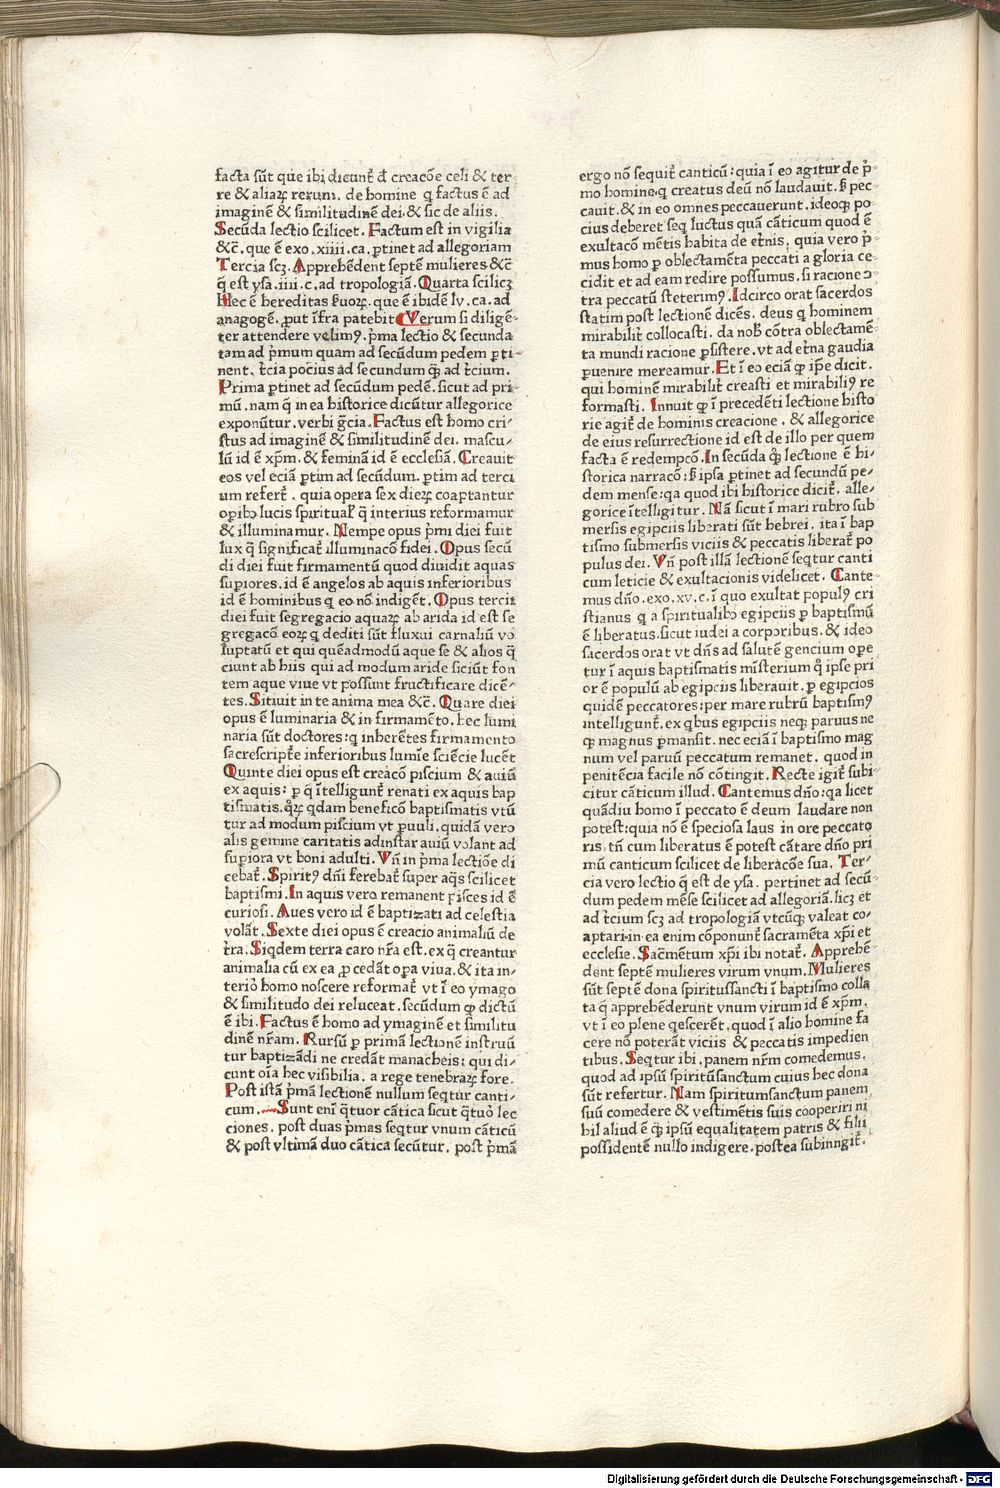 facta sūt que ibi dicunt̄ đ creacōe celi & ter
re & aliaꝝ rerum. de homine q factus ē ad
imaginē & similitudinē dei. & sic de aliis.
Secūda lectio scilicet. Factum est in vigilia
&c̄. que ē exo. xiiii. ca. ꝑtinet ad allegoriam
Tercia scꝫ. Apprehēdent septē mulieres &c̄
q̄ est ysa. iiii. c. ad tropologiā. Quarta scilicꝫ
Hec ē hereditas ẜuoꝝ. que ē ibidē lv. ca. ad
anagogē. ꝓut īfra patebit Verum si diligē-
ter attendere velimꝰ. p̄ma lectio & secunda
tam ad p̄mum quam ad secūdum pedem ꝑti-
nent. t̄cia pocius ad secundum ꝙ̄ ad t̄cium.
Prima ꝑtinet ad secūdum pedē. sicut ad pri-
mū. nam q̄ in ea historice dicūtur allegorice
exponūtur. verbi gr̄cia. Factus est homo cri-
stus ad imaginē & similitudinē dei. mascu-
lū id ē xp̄m. & feminā id ē ecclesiā. Creauit
eos vel eciā ꝑtim ad secūdum. ꝑtim ad terci
um refert̄. quia opera sex dieꝝ coaptantur
oꝑibꝫ lucis spiritual' q̄ interius reformamur
& illuminamur. Nempe opus p̄mi diei fuit
lux q̄ significat̄ illuminacō fidei. Opus secū
di diei fuit firmamentū quod diuidit aquas
suꝑiores. id ē angelos ab aquis inferioribus
id ē hominibus q eo nō indigēt. Opus tercii
diei fuit segregacio aquaꝝ ab arida id est se
gregacō eoꝝ q dediti sūt fluxui carnaliū vo
luptatū et qui quēadmodū aque se & alios q̄
ciunt ab hiis qui ad modum aride siciūt fon
tem aque viue vt possunt fructificare dicē-
tes. Sitiuit in te anima mea &c̄. Quare diei
opus ē luminaria & in firmamēto. hec lumi
naria sūt doctores: q inherētes firmamento
sacrescript̄e inferioribus lumīe sciēcie lucēt
Quinte diei opus est creacō piscium & auiū
ex aquis: ꝑ q̄ ītelligunt̄ renati ex aquis bap
tismatis. qꝝ̄ qdam beneficō baptismatis vtū
tur ad modum piscium vt ꝑuuli. quidā vero
alis gemine caritatis adinstar auiū volant ad
suꝑiora vt boni adulti. Vn̄ in p̄ma lectiōe di
cebat̄. Spiritꝰ dn̄i ferebat̄ super aq̄s scilicet
baptismi. In aquis vero remanent pisces id ē
curiosi. Aues vero id ē baptizati ad celestia
volāt. Sexte diei opus ē creacio animaliū de
t̄ra. Siqdem terra caro nr̄a est. ex q̄ creantur
animalia cū ex ea ꝓcedāt oꝑa viua. & ita in-
terio⁹ homo noscere reformat̄ vt ī eo ymago
& similitudo dei reluceat. secūdum ꝙ dictū
ē ibi. Factus ē homo ad ymaginē et similitu
dinē nr̄am. Rursū ꝑ primā lectionē instruū
tur baptizādi ne credāt manacheis: qui di-
cunt oīa hec visibilia. a rege tenebraꝝ fore.
Post istā p̄mā lectionē nullum seqtur canti-
cum. Sunt eni q̄tuor cātica sicut q̄tuo⁹ lec
ciones. post duas p̄mas seqtur vnum cāticū
& post vltimā duo cātica secūtur. post p̄mā
ergo nō sequit̄ canticū: quia ī eo agitur de p̄-
mo homine. q creatus deū nō laudauit. ẜ pec-
cauit. & in eo omnes peccauerunt. ideoqꝫ po-
cius deberet seq luctus quā cāticum quod ē
exultacō mētis habita de et̄nis. quia vero p̄-
mus homo ꝑ oblectamēta peccati a gloria ce-
cidit et ad eam redire possumus. si racione ꝯ-
tra peccatū steterimꝰ. Idcirco orat sacerdos
statim post lectionē dicēs. deus q hominem
mirabilit̄ collocasti. da nob̄ cōtra oblectamē-
ta mundi racione ꝑsistere. vt ad et̄na gaudia
ꝑuenire mereamur. Et ī eo eciā ꝙ ip̄e dicit.
qui hominē mirabilit̄ creasti et mirabiliꝰ re
formasti. Innuit ꝙ ī precedēti lectione histo
rie agit̄ de hominis creacione. & allegorice
de eius resurrectione id est de illo per quem
facta ē redempcō. In secūda qͣꝫ lectione ē hi-
storica narracō: ẜ ipsa ꝑtinet ad secundū pe-
dem mense: qa quod ibi historice dicit̄. alle-
gorice ītelligitur. Nā sicut ī mari rubro sub
mersis egipciis liberati sūt hebrei. ita ī bap
tismo submersis viciis & peccatis liberat̄ po
pulus dei. Vn̄ post illā lectionē seqtur canti
cum leticie & exultacionis videlicet. Cante-
mus dn̄o. exo. xv. c. ī quo exultat populꝰ cri
stianus q a spiritualibꝫ egipciis ꝑ baptismū
ē liberatus. sicut iudei a corporibus. & ideo
sacerdos orat vt dn̄s ad salutē gencium oꝑe
tur ī aquis baptismatis mīsterium qͥ ipse pri
or ē populū ab egipciis liberauit. ꝑ egipcios
quidē peccatores: per mare rubrū baptismꝰ
intelligunt̄. ex qbus egipciis neqꝫ paruus ne
qꝫ magnus ꝑmansit. nec eciā ī baptismo mag
num vel paruū peccatum remanet. quod in
penitēcia facile nō cōtingit. Recte igit̄ subi-
citur cāticum illud. Cantemus dn̄o: qa licet
quādiu homo ī peccato ē deum laudare non
potest: quia nō ē speciosa laus in ore peccato
ris. tn̄ cum liberatus ē potest cātare dn̄o pri
mū canticum scilicet de liberacōe sua. Ter-
cia vero lectio q̄ est de ysa. pertinet ad secū-
dum pedem mēse scilicet ad allegoriā. licꝫ et
ad t̄cium scꝫ ad tropologiā vtcūqꝫ valeat co-
aptari. in ea enim cōponunt̄ sacramēta xp̄i et
ecclesie. Sac̄mētum xp̄i ibi notat̄. Apprehē-
dent septē mulieres virum vnum. Mulieres
sūt septē dona spiritussancti ī baptismo colla
ta q̄ apprehēderunt vnum virum id ē xp̄m.
vt ī eo plene qescerēt. quod ī alio homine fa
cere nō poterāt viciis & peccatis impedien
tibus. Seqtur ibi. panem nr̄m comedemus.
quod ad ipsū spiritūsanctum cuius hec dona
sūt refertur. Nam spiritumsanctum panem
suū comedere & vestimētis suis cooperiri ni
hil aliud ē ꝙ̄ ipsū equalitatem patris & filii
possidentē nullo indigere. postea subinngit̄.
Digitalisierung gefördert durch die Deutsche Forschungsgemeinschaft - DFG